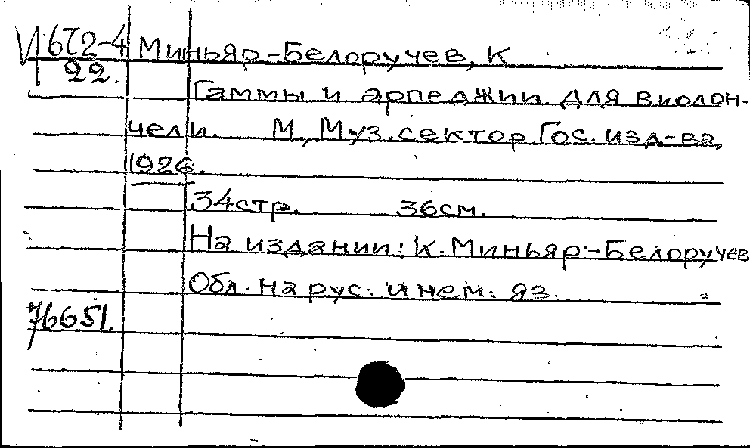 И672-4 Миньяр-Белоручев, К
22.
Гаммы и арпеджии для виолон-
чели. М, Муз. сектор Гос. изд-ва,
1926.
34стр. 36см.
На издании: К. Миньяр-Белоручев
Обл. на рус. и нем. яз.
76651.